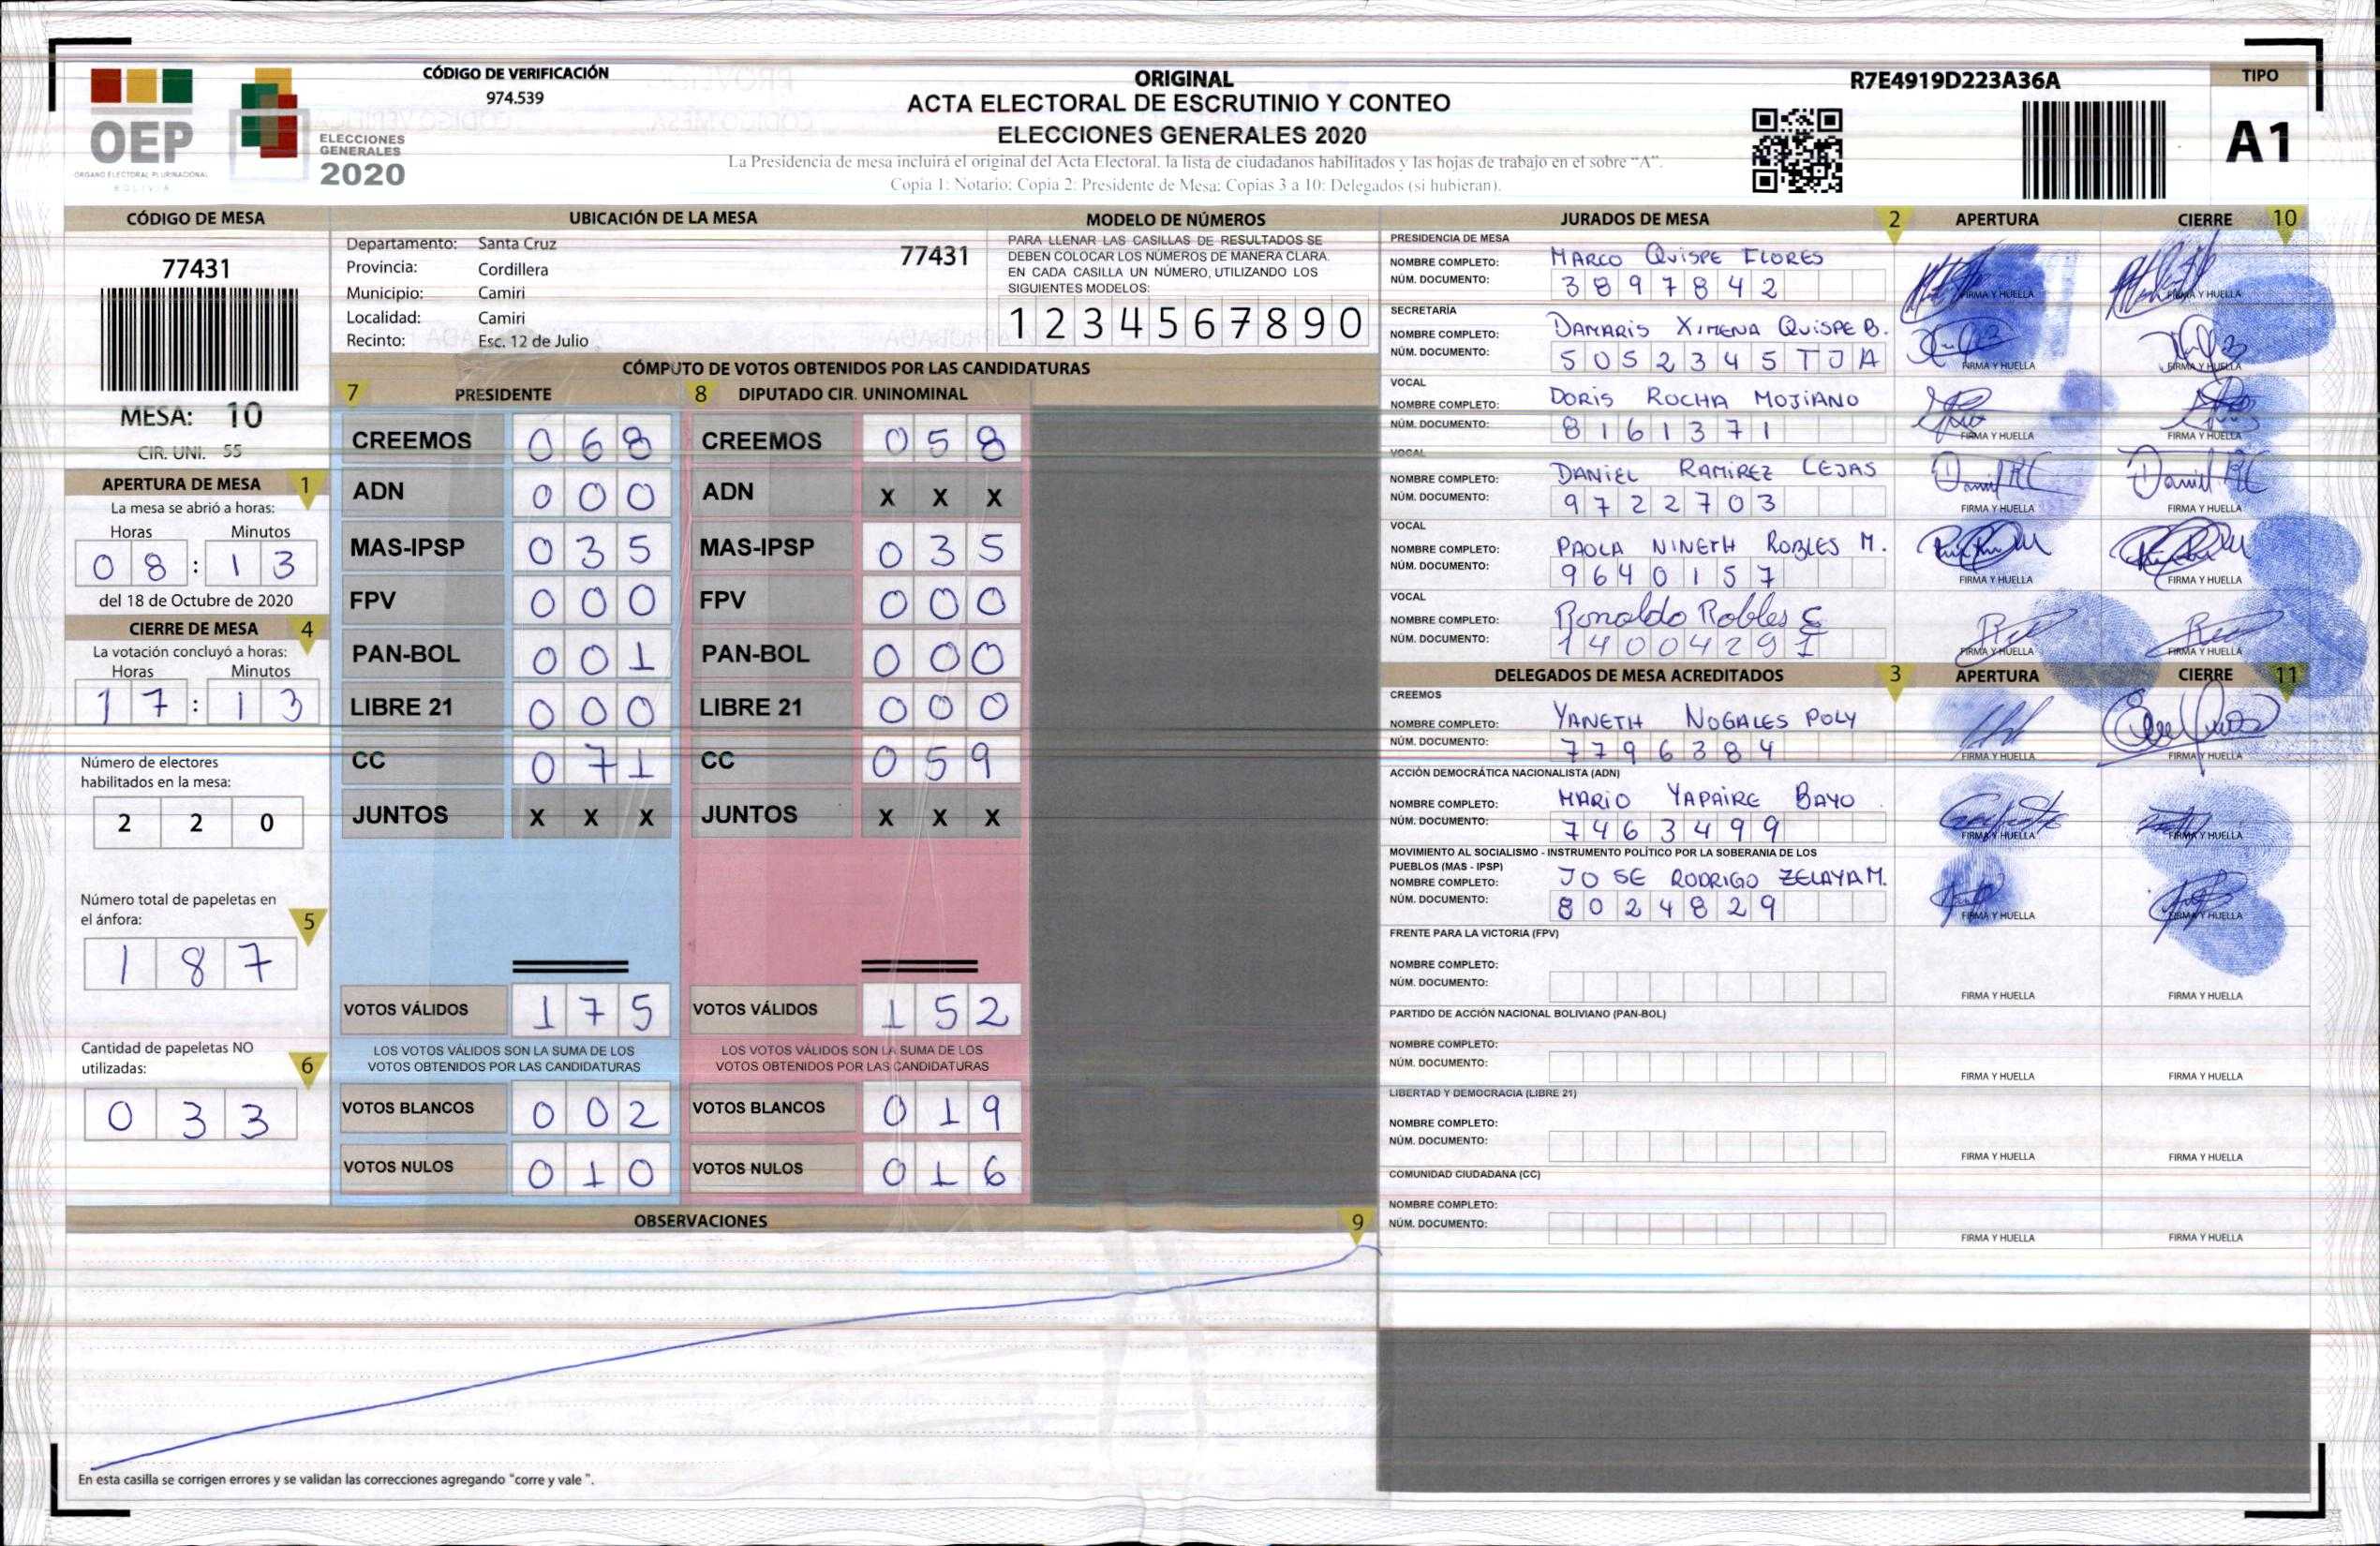 OEP
ÓRGANO ELECTORAL PLURINACIONAL
BOLIVIA
ELECCIONES
GENERALES
2020
CÓDIGO DE VERIFICACIÓN
974.539
ORIGINAL
ACTA ELECTORAL DE ESCRUTINIO Y CONTEO
ELECCIONES GENERALES 2020
La Presidencia de mesa incluirá el original del Acta Electoral, la lista de ciudadanos habilitados y las hojas de trabajo en el sobre "A".
Copia 1: Notario; Copia 2: Presidente de Mesa; Copias 3 a 10: Delegados (si hubieran).
R7E4919D223A36A
TIPO
A1
CÓDIGO DE MESA
77431
MESA: 10
CIR. UNI. 55
APERTURA DE MESA 1
La mesa se abrió a horas:
Horas Minutos
08 : 13
del 18 de Octubre de 2020
CIERRE DE MESA 4
La votación concluyó a horas:
Horas Minutos
17 : 13
Número de electores
habilitados en la mesa:
220
Número total de papeletas en
el ánfora: 5
187
Cantidad de papeletas NO
utilizadas: 6
033
UBICACIÓN DE LA MESA
Departamento: Santa Cruz
77431
Provincia: Cordillera
Municipio: Camiri
Localidad: Camiri
Recinto: Esc. 12 de Julio
MODELO DE NÚMEROS
PARA LLENAR LAS CASILLAS DE RESULTADOS SE
DEBEN COLOCAR LOS NÚMEROS DE MANERA CLARA.
EN CADA CASILLA UN NÚMERO, UTILIZANDO LOS
SIGUIENTES MODELOS:
1 2 3 4 5 6 7 8 9 0
CÓMPUTO DE VOTOS OBTENIDOS POR LAS CANDIDATURAS
7 PRESIDENTE 8 DIPUTADO CIR. UNINOMINAL
CREEMOS 068 CREEMOS 058
ADN 000 ADN X X X
MAS-IPSP 035 MAS-IPSP 035
FPV 000 FPV 000
PAN-BOL 001 PAN-BOL 000
LIBRE 21 000 LIBRE 21 000
CC 071 CC 059
JUNTOS X X X JUNTOS X X X
VOTOS VÁLIDOS 175 VOTOS VÁLIDOS 152
LOS VOTOS VÁLIDOS SON LA SUMA DE LOS LOS VOTOS VÁLIDOS SON LA SUMA DE LOS
VOTOS OBTENIDOS POR LAS CANDIDATURAS VOTOS OBTENIDOS POR LAS CANDIDATURAS
VOTOS BLANCOS 002 VOTOS BLANCOS 019
VOTOS NULOS 010 VOTOS NULOS 016
OBSERVACIONES 9
En esta casilla se corrigen errores y se validan las correcciones agregando "corre y vale ".
JURADOS DE MESA 2 APERTURA CIERRE 10
PRESIDENCIA DE MESA
NOMBRE COMPLETO: MARCO QUISPE FLORES
NÚM. DOCUMENTO: 3897842
FIRMA Y HUELLA FIRMA Y HUELLA
SECRETARÍA
NOMBRE COMPLETO: DAMARIS XIMENA QUISPE B.
NÚM. DOCUMENTO: 5052345TJA
FIRMA Y HUELLA FIRMA Y HUELLA
VOCAL
NOMBRE COMPLETO: DORIS ROCHA MOJIANO
NÚM. DOCUMENTO: 8161371
FIRMA Y HUELLA FIRMA Y HUELLA
VOCAL
NOMBRE COMPLETO: DANIEL RAMIREZ CEJAS
NÚM. DOCUMENTO: 9722703
FIRMA Y HUELLA FIRMA Y HUELLA
VOCAL
NOMBRE COMPLETO: PAOLA NINETH ROBLES M.
NÚM. DOCUMENTO: 9640157
FIRMA Y HUELLA FIRMA Y HUELLA
VOCAL
NOMBRE COMPLETO: Ronaldo Robles C
NÚM. DOCUMENTO: 14004291
FIRMA Y HUELLA FIRMA Y HUELLA
DELEGADOS DE MESA ACREDITADOS 3 APERTURA CIERRE 11
CREEMOS
NOMBRE COMPLETO: YANETH NOGALES POLY
NÚM. DOCUMENTO: 7796384
FIRMA Y HUELLA FIRMA Y HUELLA
ACCIÓN DEMOCRÁTICA NACIONALISTA (ADN)
NOMBRE COMPLETO: MARIO YAPAIRE BAYO
NÚM. DOCUMENTO: 7463499
FIRMA Y HUELLA FIRMA Y HUELLA
MOVIMIENTO AL SOCIALISMO - INSTRUMENTO POLÍTICO POR LA SOBERANIA DE LOS
PUEBLOS (MAS - IPSP)
NOMBRE COMPLETO: JOSE RODRIGO ZELAYA M.
NÚM. DOCUMENTO: 8024829
FIRMA Y HUELLA FIRMA Y HUELLA
FRENTE PARA LA VICTORIA (FPV)
NOMBRE COMPLETO:
NÚM. DOCUMENTO:
FIRMA Y HUELLA FIRMA Y HUELLA
PARTIDO DE ACCIÓN NACIONAL BOLIVIANO (PAN-BOL)
NOMBRE COMPLETO:
NÚM. DOCUMENTO:
FIRMA Y HUELLA FIRMA Y HUELLA
LIBERTAD Y DEMOCRACIA (LIBRE 21)
NOMBRE COMPLETO:
NÚM. DOCUMENTO:
FIRMA Y HUELLA FIRMA Y HUELLA
COMUNIDAD CIUDADANA (CC)
NOMBRE COMPLETO:
NÚM. DOCUMENTO:
FIRMA Y HUELLA FIRMA Y HUELLA